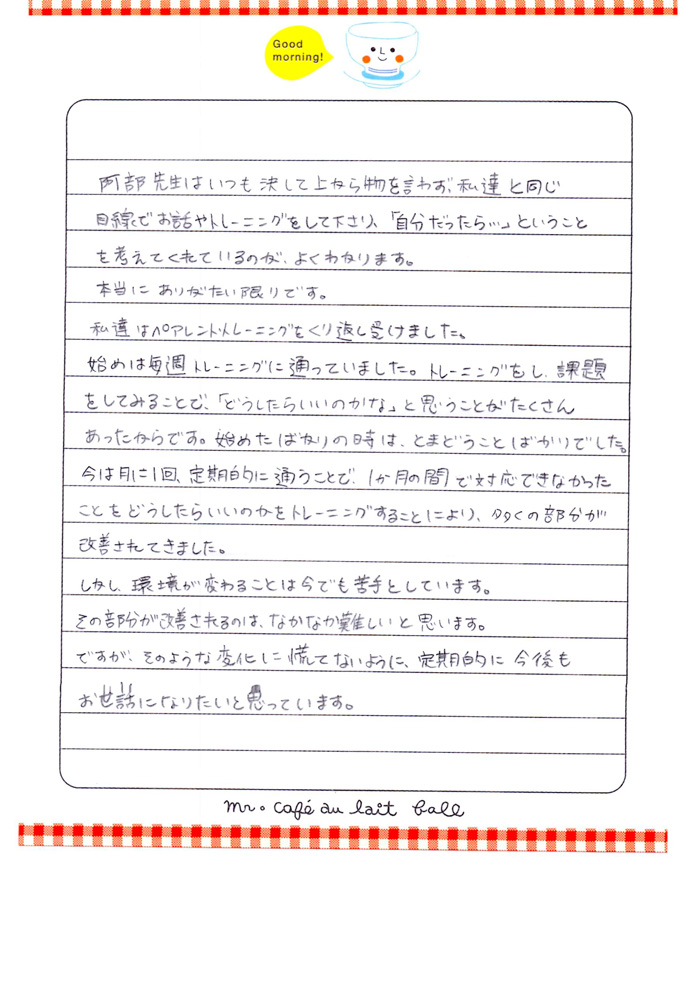 Good
morning!
阿部先生はいつも決して上から物を言わず、私達と同じ
目線でお話やトレーニングをして下さり、「自分だったら…」ということ
を考えてくれているのが、よくわかります。
本当にありがたい限りです。
私達はペアレント・トレーニングをくり返し受けました。
始めは毎週トレーニングに通っていました。トレーニングをし、課題
をしてみることで、「どうしたらいいのかな」と思うことがたくさん
あったからです。始めたばかりの時は、とまどうことばかりでした。
今は月に1回、定期的に通うことで、1か月の間で対応できなかった
ことをどうしたらいいのかをトレーニングすることにより、多くの部分が
改善されてきました。
しかし、環境が変わることは今でも苦手としています。
その部分が改善されるのは、なかなか難しいと思います。
ですが、そのような変化に慌てないように、定期的に今後も
お世話になりたいと思っています。
mr. café au lait ball